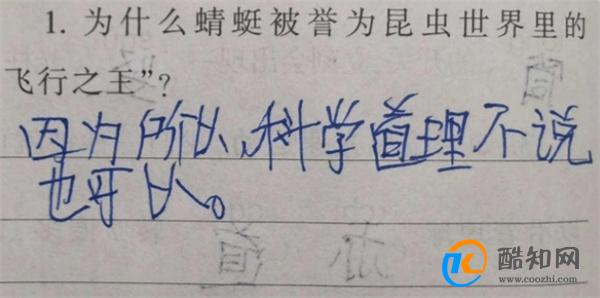 1. 为什么蜻蜓被誉为昆虫世界里的
飞行之王”?
因为所以,科学道理不说
也可以。
酷知网
www.coozhi.com